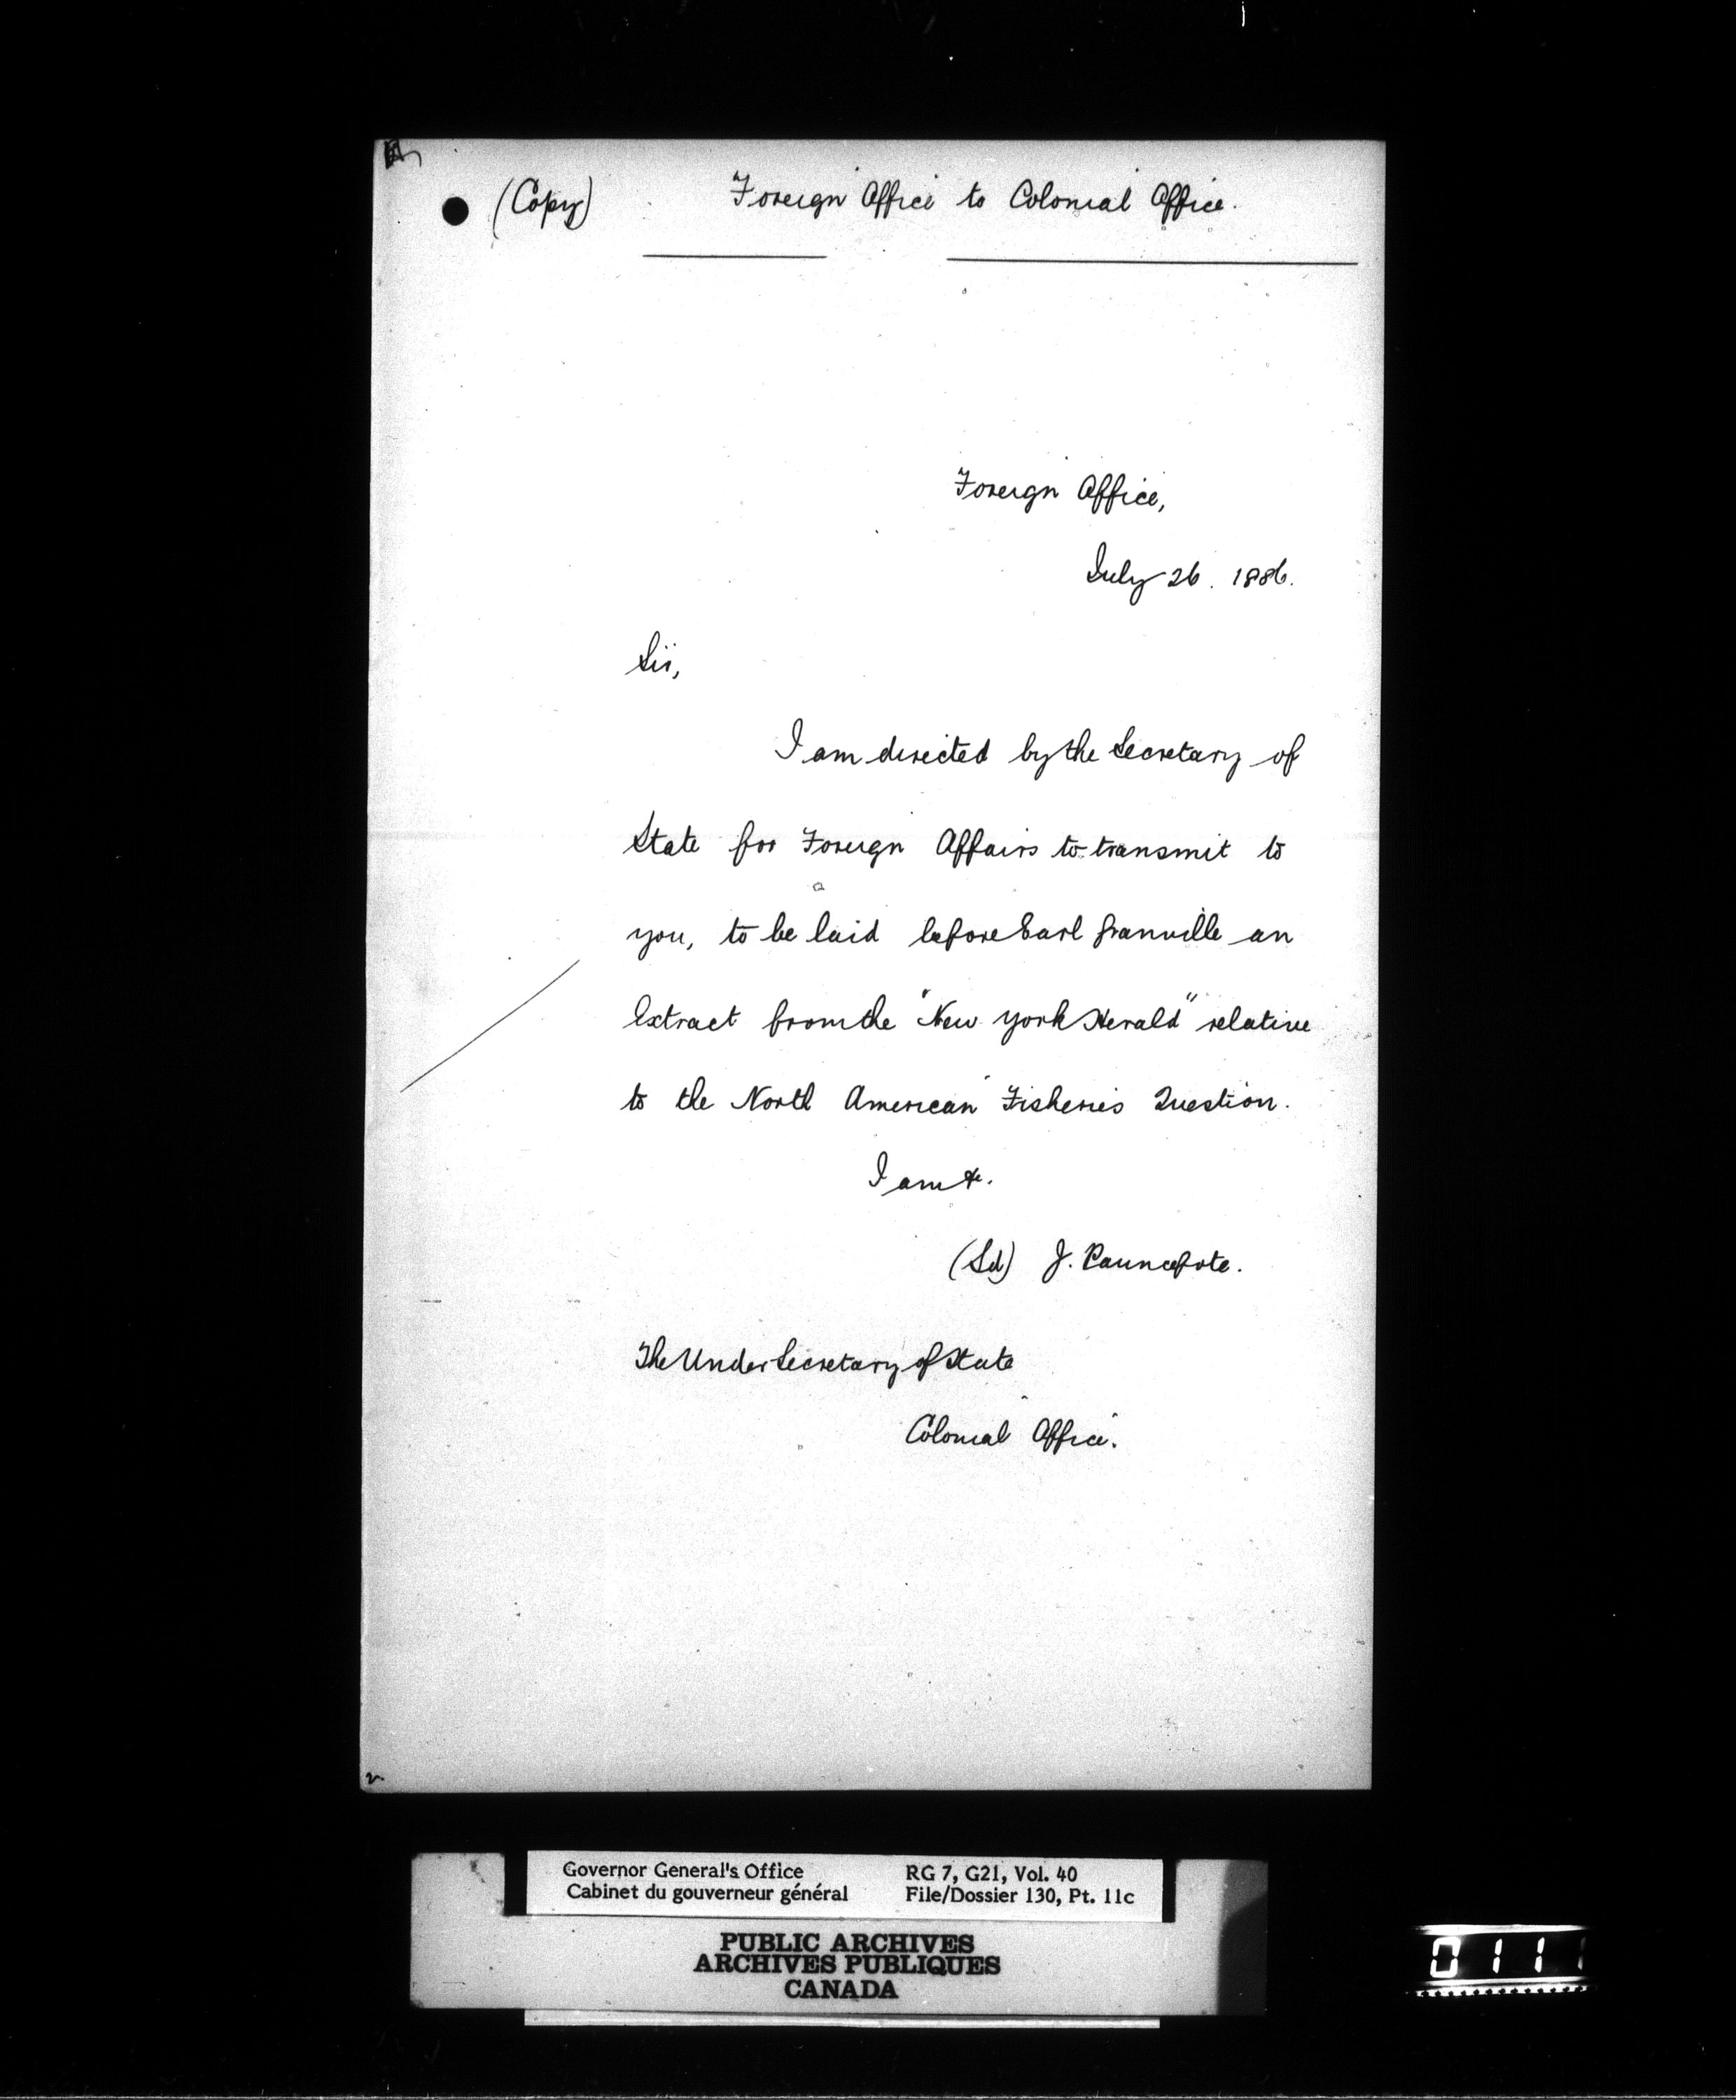 (Copy) Foreign Office to Colonial Office.
Foreign Office,
July 26. 1886.
Sir,
I am directed by the Secretary of
State for Foreign Affairs to transmit to
you, to be laid before Earl Granville an
Extract from the "New York Herald" relative
to the North American Fisheries Question.
I am &c.
(Sd) J. Pauncefote.
The Under Secretary of State
Colonial Office.
Governor General's Office
Cabinet du gouverneur général
RG 7, G21, Vol. 40
File/Dossier 130, Pt. 11c
PUBLIC ARCHIVES
ARCHIVES PUBLIQUES
CANADA
0111